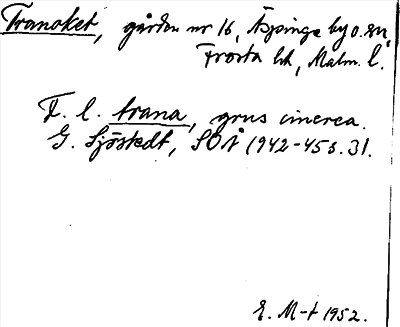 Tranoket, gården nr 16, Äspinge by o. sn,
Frosta hd, Malm. l.
F. l. trana, grus cinerea.
G. Sjöstedt, SOÅ 1942-45 s. 31.
E. M-t 1952.